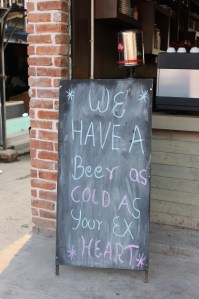 WE
HAVE A
Beer as
COLD AS
your EX
HEART